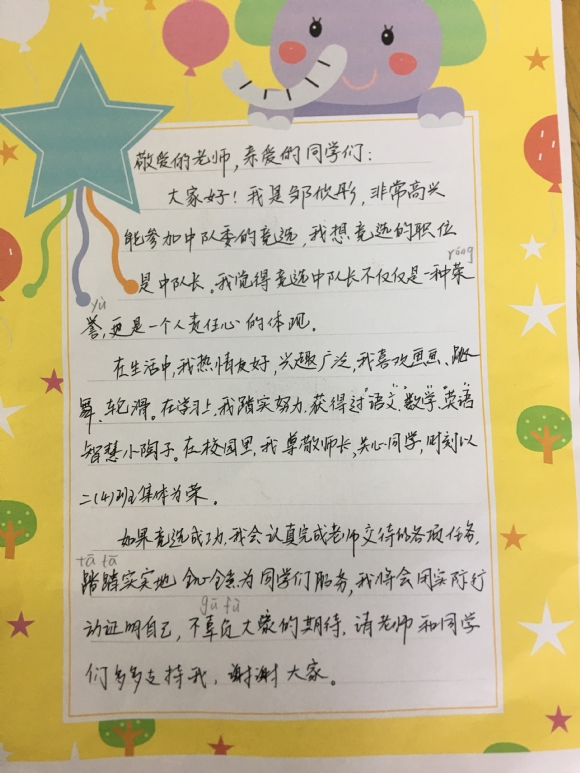 敬爱的老师，亲爱的同学们：
大家好！我是邹攸彤，非常高兴
能参加中队委的竞选，我想竞选的职位
róng
是中队长。我觉得竞选中队长不仅仅是一种荣
yù
誉，更是一个人责任心的体现。
在生活中，我热情友好，兴趣广泛，我喜欢画画、跳
舞、轮滑。在学习上，我踏实努力，获得过"语文、数学、英语
智慧小陶子。在校园里，我尊敬师长，关心同学，时刻以
二(4)班集体为荣。
如果竞选成功，我会认真完成老师交待的各项任务，
tā tā
踏踏实实地 全心全意为同学们服务，我将会用实际行
gū fù
动证明自己，不辜负大家的期待。请老师和同学
们多多支持我，谢谢大家。